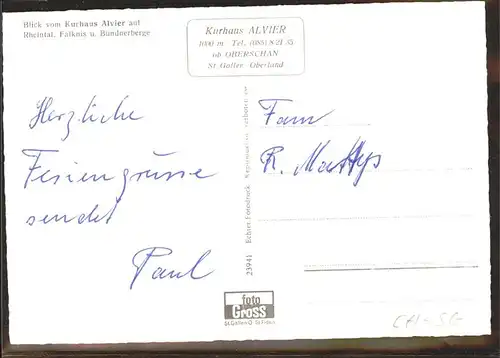 Blick vom Kurhaus Alvier auf
Rheintal, Falknis u. Bündnerberge
Kurhaus ALVIER
1000 m Tel. (085) 8 21 35
ob OBERSCHAN
St. Galler Oberland
Herzliche
Feriengrüsse
sendet
Paul
Fam
R. Mathys
23941 Echter Fotodruck. Reproduktion verboten
foto
Gross
St. Gallen
CH-SG